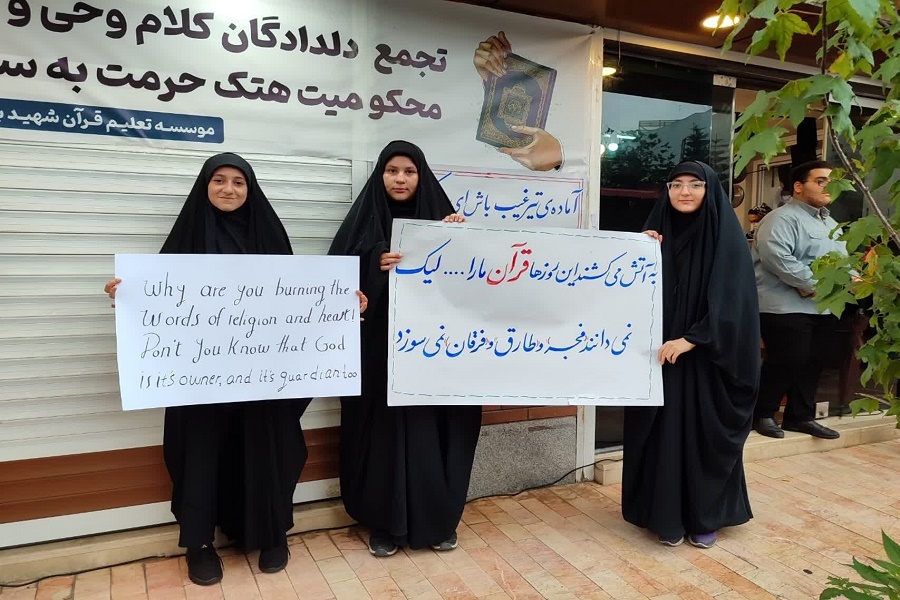 تجمع دلدادگان کلام وحی و
محکومیت هتک حرمت به
موسسه تعلیم قرآن شهید
آماده‌ی ترغیب باش ای
Why are you burning the
words of religion and heart!
Don't You Know that God
is it's owner, and it's guardian too
به آتش می کشند این روزها قرآن مارا .... لیک
نمی دانند فجر و طارق و فرقان نمی سوزد